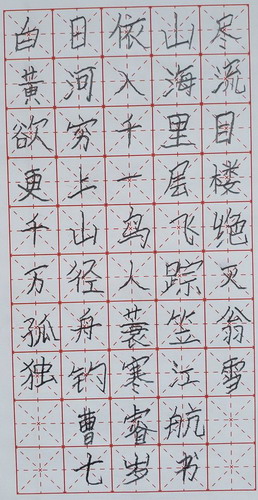 白日依山尽
黄河入海流
欲穷千里目
更上一层楼
千山鸟飞绝
万径人踪灭
孤舟蓑笠翁
独钓寒江雪
曹睿航
七岁书